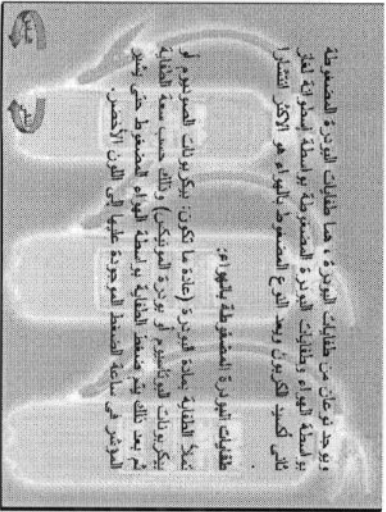 ويوجد نوعان من طفايات البودرة ، هما طفايات البودرة المضغوطة
بواسطة الهواء وطفايات البودرة المضغوطة بواسطة اسطوانة لغاز
ثاني أكسيد الكربون ويعد النوع المضغوط بالهواء هو الأكثر انتشارا
.
طفايات البودرة المضغوطة بالهواء:
تملأ الطفاية بمادة البودرة (عادة ما تكون: بيكربونات الصوديوم أو
بيكربونات البوتاسيوم أو بودرة المونيكس) وذلك حسب سعة الطفاية
ثم بعد ذلك يتم ضغط الطفاية بواسطة الهواء المضغوط حتى يشير
المؤشر في ساعة الضغط الموجودة عليها إلى اللون الأخضر.